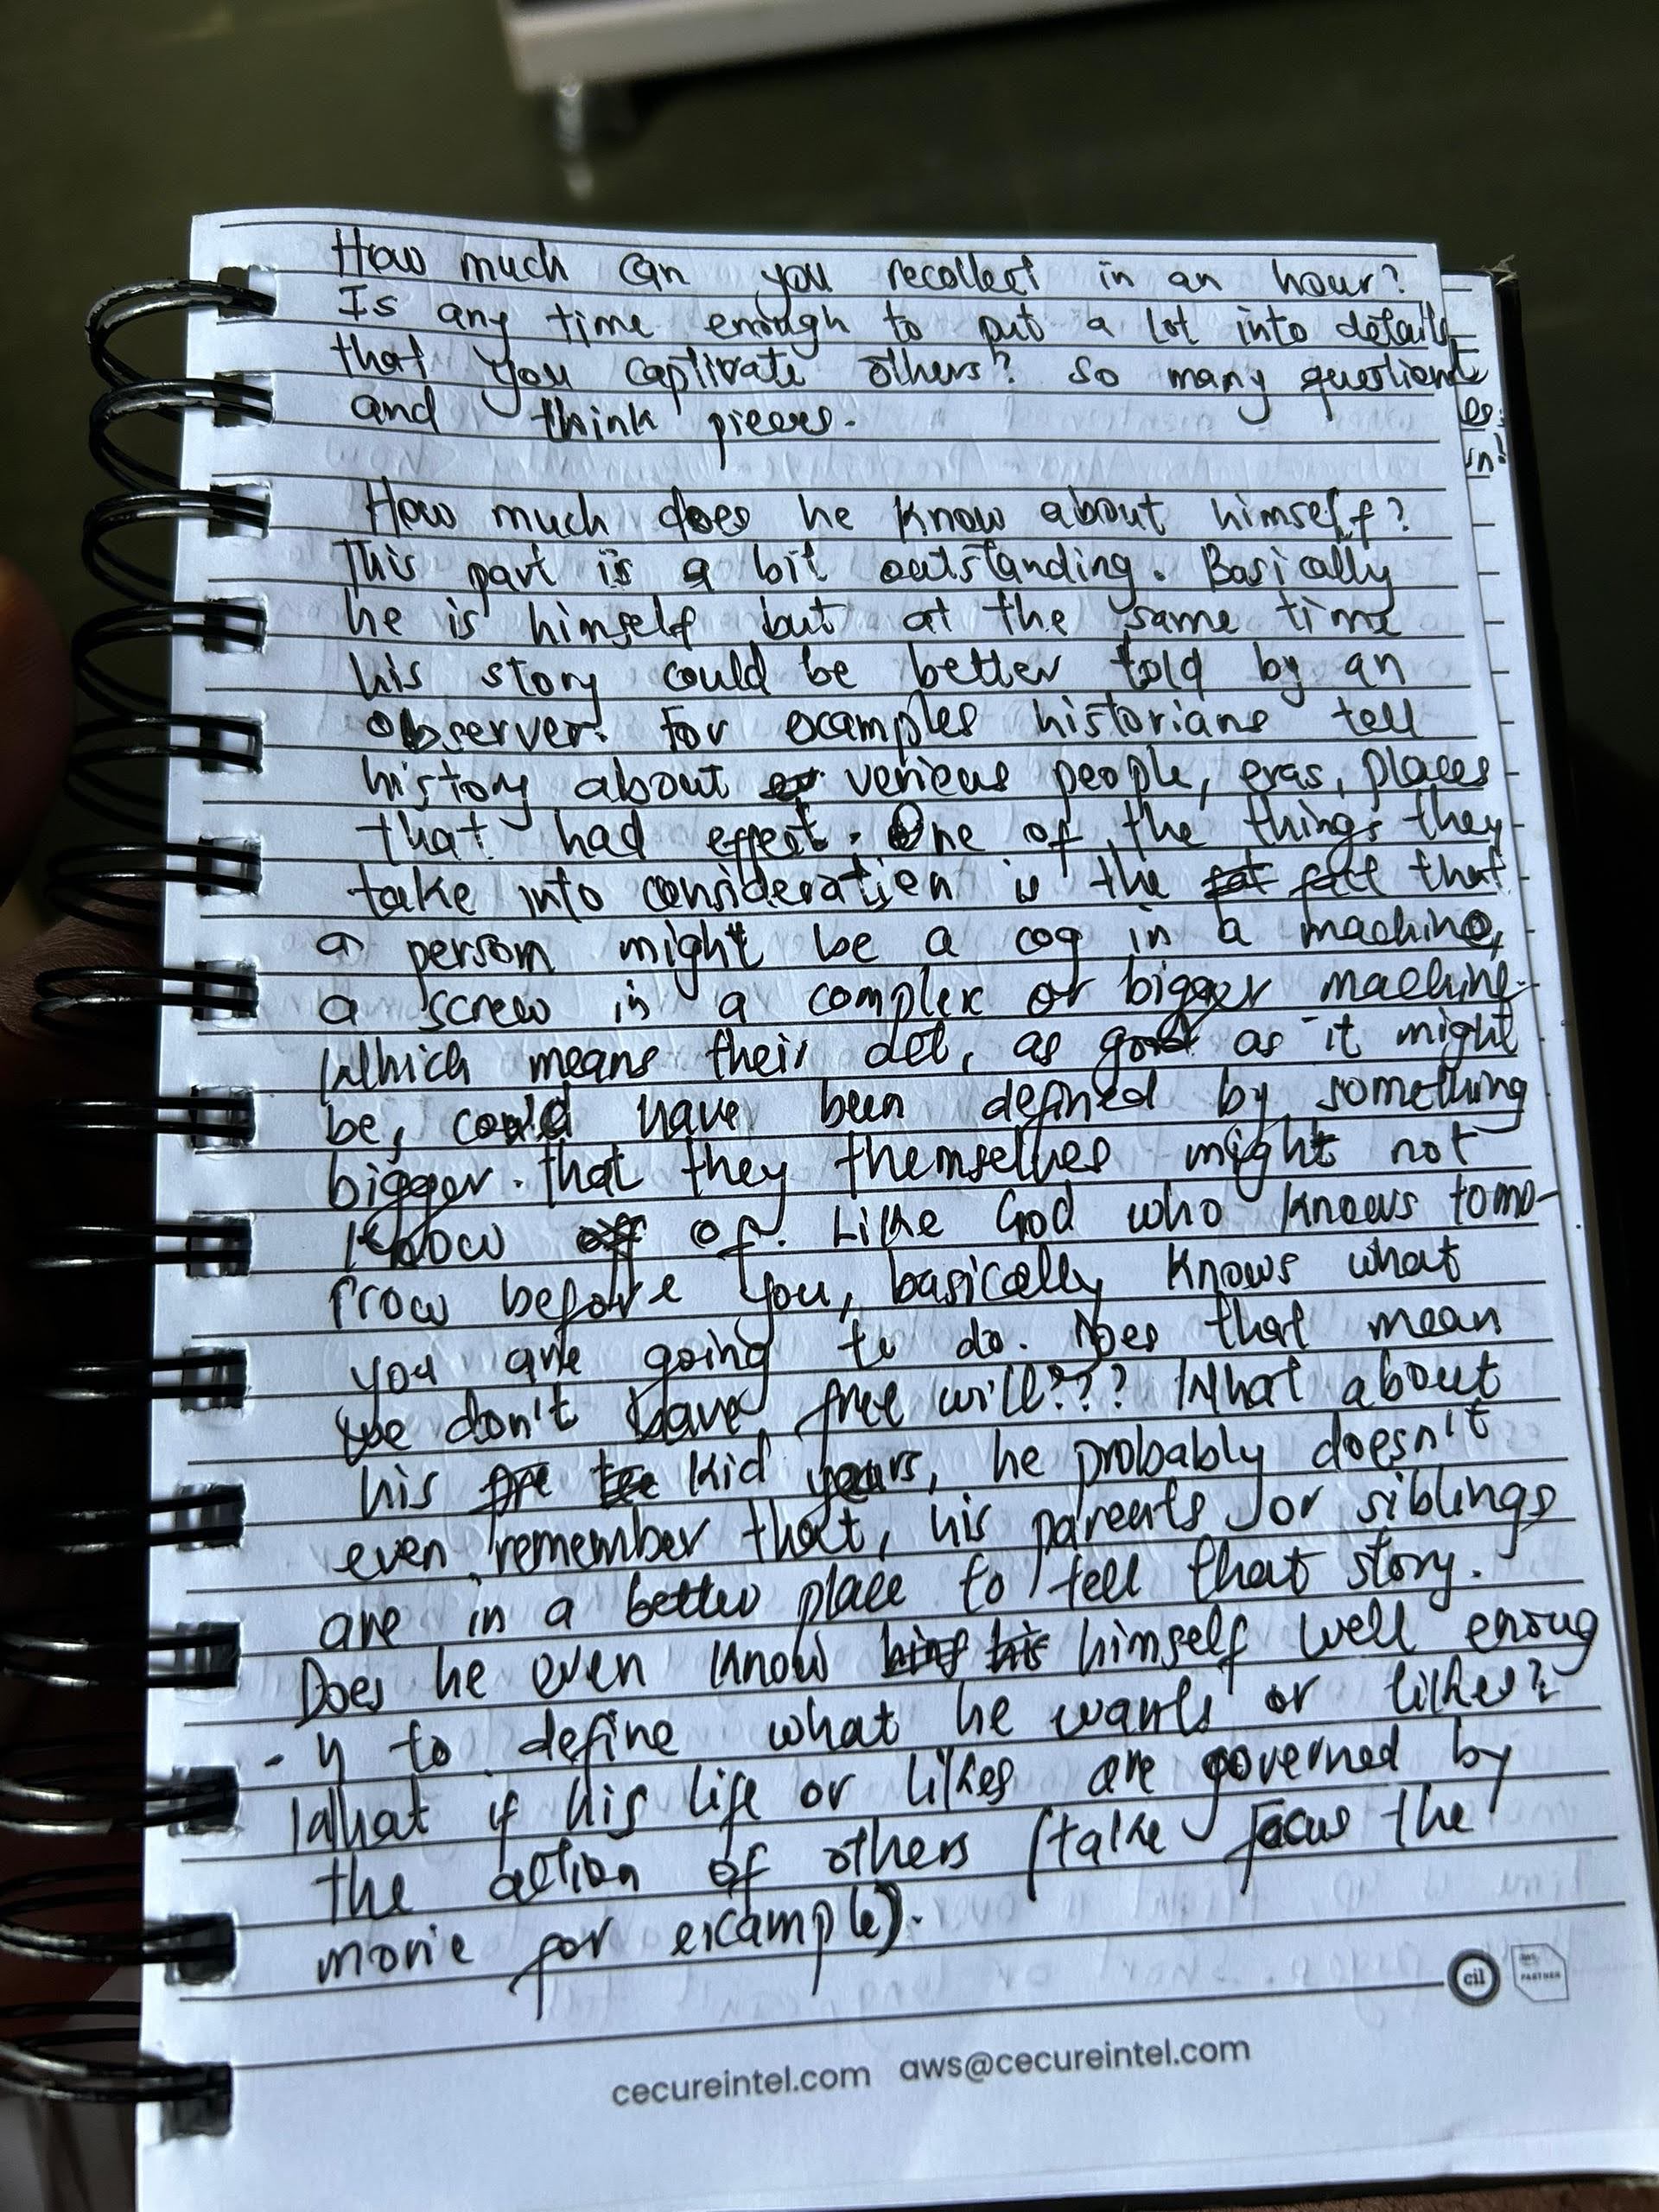 How much can you recollect in an hour?
Is any time enough to put a lot into details
that you captivate others? so many questions
and think pieces.
How much does he know about himself?
This part is a bit outstanding. Basically
he is himself but at the same time
his story could be better told by an
observer. For examples historians tell
history about verieus people, eras, places
that had effect. One of the things they
take into consideration is the fact that
a person might be a cog in a machine,
a screw in a complex or bigger machine.
Which means their act, as good as it might
be, could have been defined by something
bigger. that they themselves might not
know of. Like God who knows tomo-
rrow before you, basically knows what
you are going to do. Does that mean
we don't have free will??? What about
his kid years, he probably doesn't
even remember that, his parents or siblings
are in a better place to tell that story.
Does he even know himself well enoug
-h to define what he wants or likes?
What if his life or likes are governed by
the action of others (take focus the
movie for example).
cil
PARTNER
cecureintel.com aws@cecureintel.com